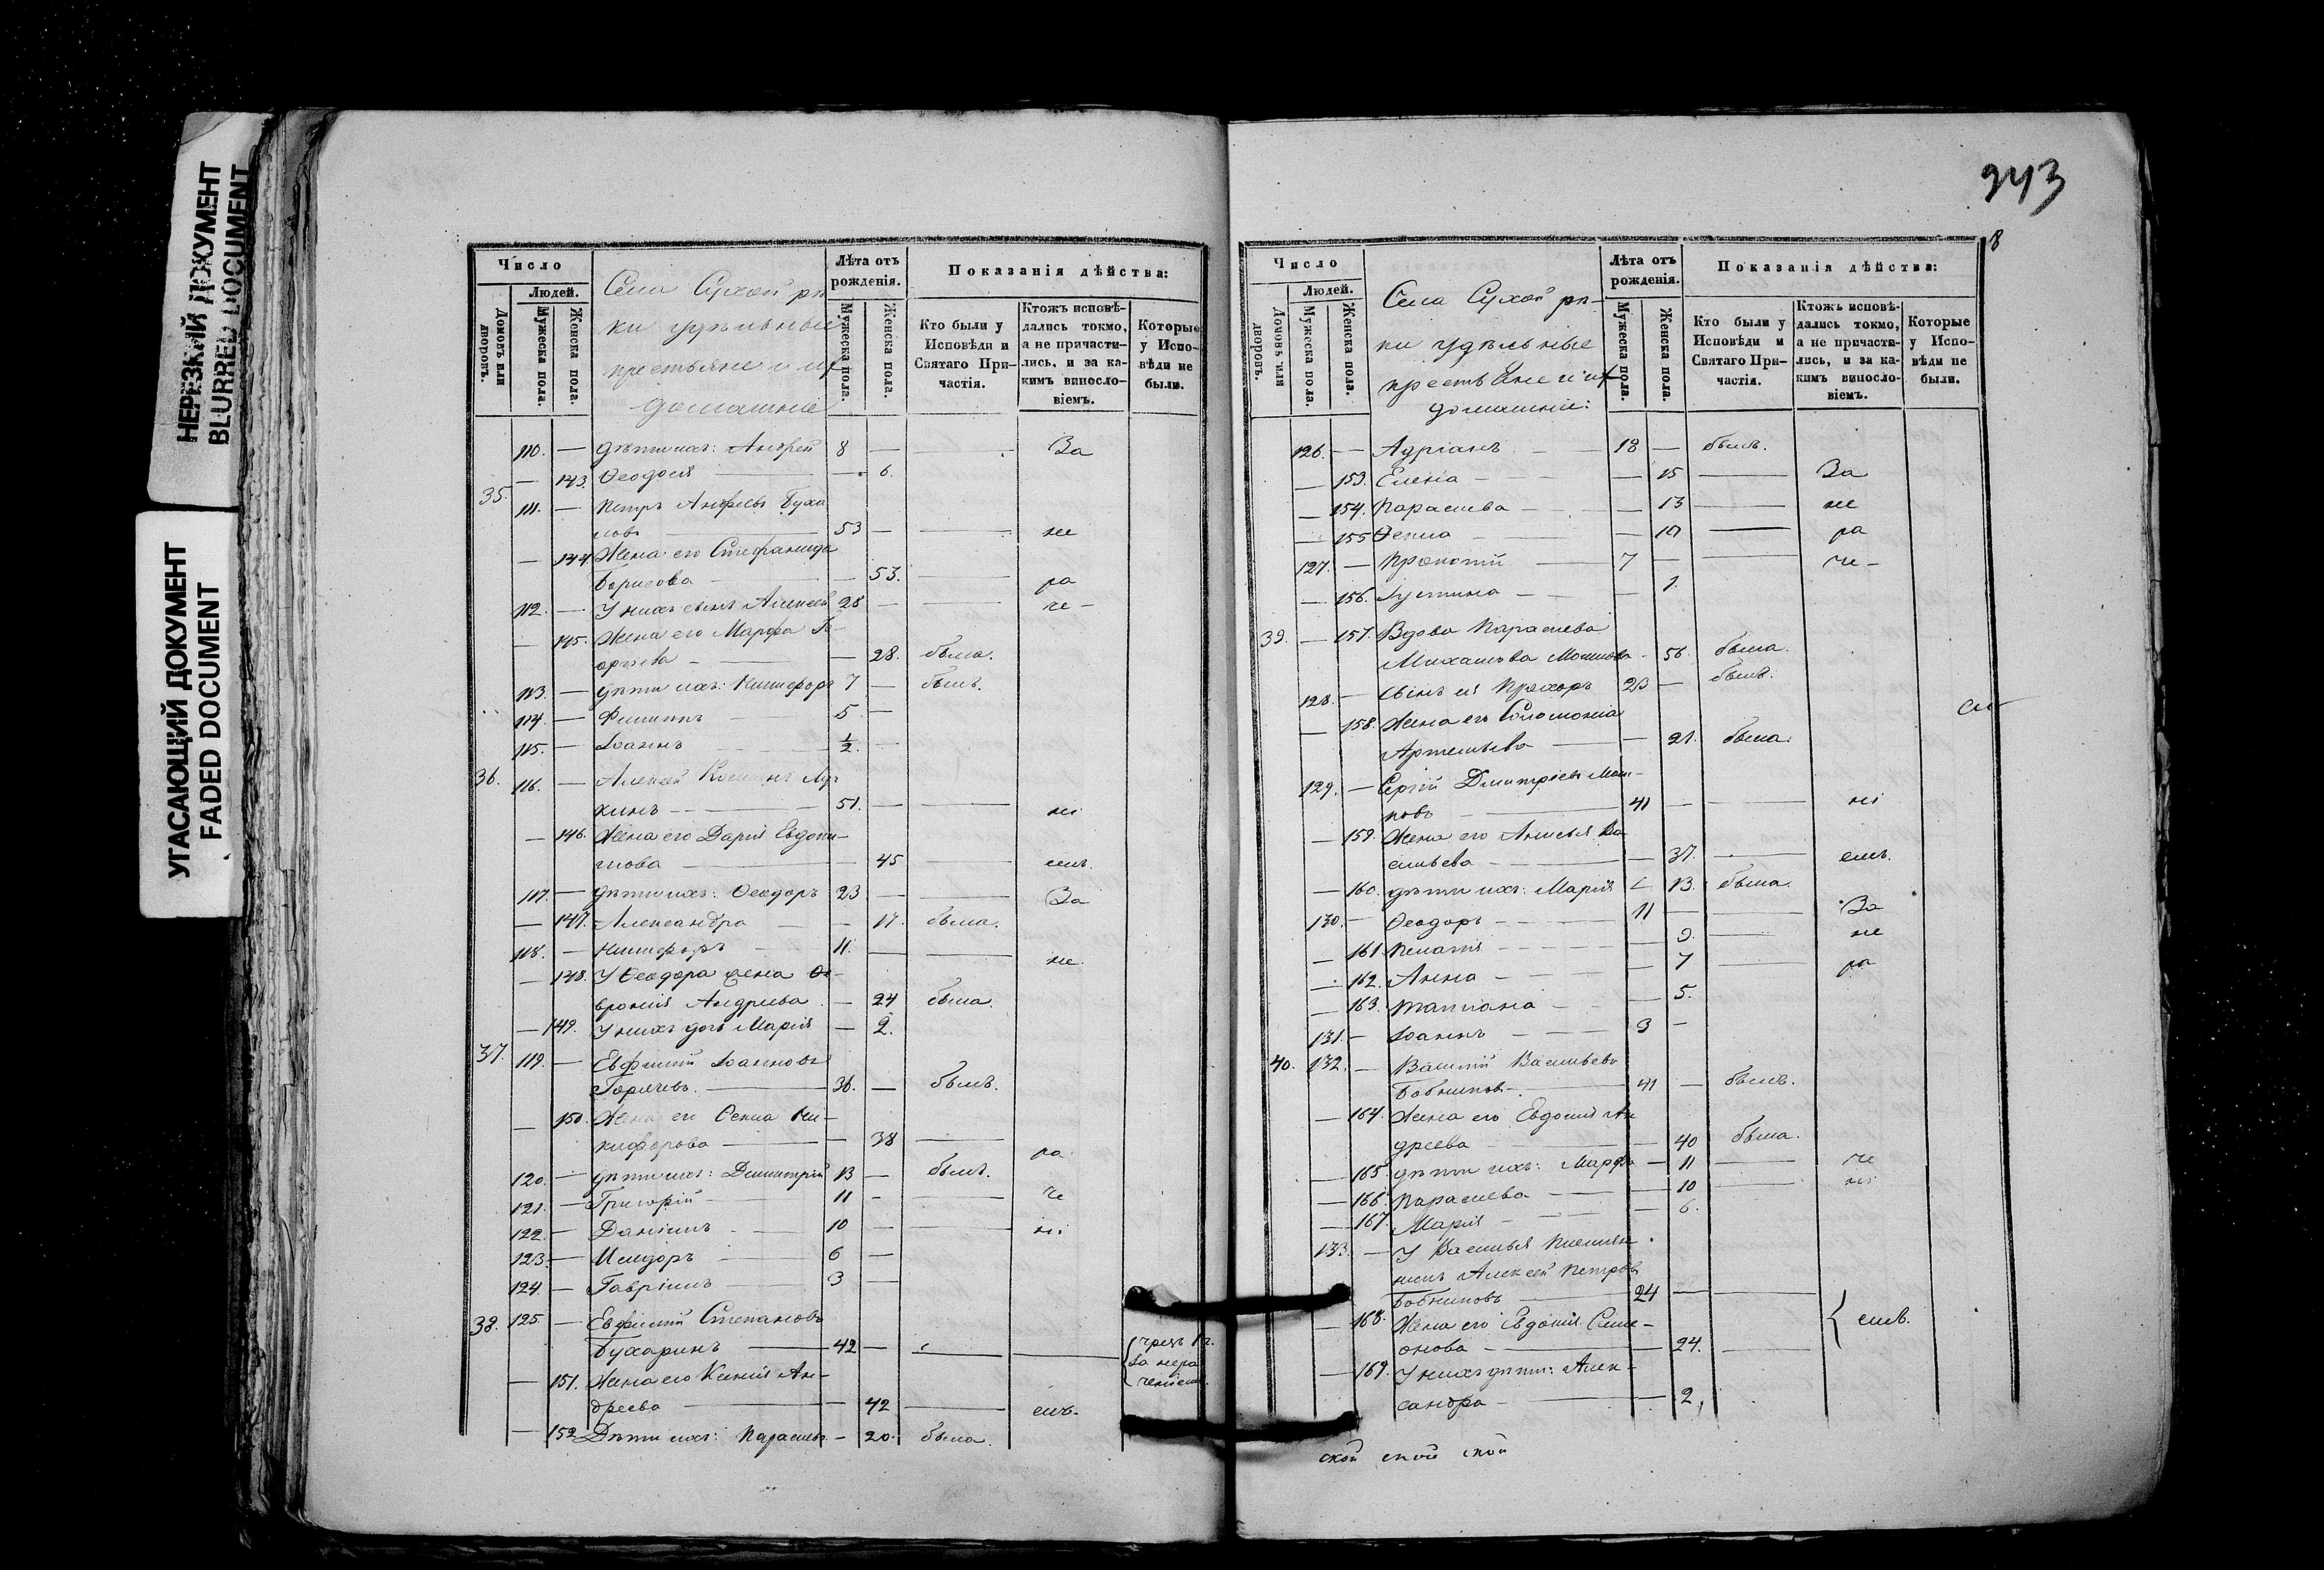 НЕРЕЗКИЙ ДОКУМЕНТ
BLURRED DOCUMENT
УГАСАЮЩИЙ ДОКУМЕНТ
FADED DOCUMENT
Число
Людей.
Домовъ или дворовъ.
Мужеска пола.
Женска пола.
Села Сухой рѣ-
ки удѣльные
крестьяне и ихъ
домашніе
Лѣта отъ рожденія.
Мужеска пола.
Женска пола.
Показанія дѣйства:
Кто были у Исповѣди и Святаго Причастія.
Ктожъ исповѣдались токмо, а не причастились, и за какимъ винословіемъ.
Которые у Исповѣди не были.
110. — дѣти ихъ: Андрей 8 — — За
— 143. Ѳеодосія — 6.
35. 111. — Петръ Андреевъ Буха
53 — — не
— 144. Жена его Стефанида
Борисова — — 53. — ра
112. — У нихъ сынъ Алексей 28 — — че-
— 145. Жена его Марфа Ге-
оргіева — — 28. была.
113. — дѣти ихъ: Никифоръ 7 — былъ.
114. — Филиппъ — 5 —
115. — Іоаннъ — ½ —
36. 116. — Алексей Козминъ Лу-
кинъ — 51. — — ні
— 146. Жена его Дарія Евдоки-
мова — — 45 — емъ.
117. — дѣти ихъ: Ѳеодоръ 23 — — За
— 147. Александра — — 17 была.
118. — Никифоръ — 11. — — не.
— 148. У Ѳеодора жена Ѳе-
вронія Андреева — 24 была.
— 149. У нихъ дочь Марія — 2.
37. 119. — Евфимій Іоанновъ
Горячевъ. — 36. — былъ.
— 150. Жена его Ѳекла Ни-
кифорова — — 38 — ра
120. — дѣти ихъ: Димитрій 13 — былъ.
121. — Григорій — 11 — — че
122. — Даніилъ — 10 — — ні
123. — Исидоръ — 6 —
124. — Гавріилъ — 3 —
38. 125 — Евфимій Степановъ
Бухаринъ — 42 — — — чрезъ 1 г.
За нера
ченіемъ.
— 151. Жена его Ксенія Ан-
дреева — — 42 — емъ.
— 152. Дѣти ихъ: Параскева — 20. была.
243
8
Число
Людей.
Домовъ или дворовъ.
Мужеска пола.
Женска пола.
Села Сухой рѣ-
ки удѣльные
крестьяне и ихъ
домашніе:
Лѣта отъ рожденія.
Мужеска пола.
Женска пола.
Показанія дѣйства:
Кто были у Исповѣди и Святаго Причастія.
Ктожъ исповѣдались токмо, а не причастились, и за какимъ винословіемъ.
Которые у Исповѣди не были.
126. — Адріанъ — 18 — былъ.
— 153. Елена — — 15 — За
— 154. Параскева — — 13 — не
— 155 Ѳекла — — 10 — ра
127. — Прокопій — 7 — — че-
— 156. Іустина — — 1.
39. — 157. Вдова Параскева
Михайлова — 56. была.
128. — Сынъ ея Прохоръ 23 — былъ.
— 158. Жена его Соломонія
Артемьева — — 21. была.
129. — Сергій Димитріевъ
41 — — ні
— 159. Жена его Анисья Ва
сильева — — 37. — емъ.
— 160. дѣти ихъ: Марія — 13. была.
130. — Ѳеодоръ — 11 — — За
— 161. — 9. — не
— 162. Анна — — 7 — ра
— 163. Татіана — — 5.
131. — Іоаннъ — 3 —
40. 132. — Василій Васильевъ
Бобниковъ. — 41 — былъ.
— 164. Жена его Евдокія Ан
дреева — — 40 была.
— 165. дѣти ихъ: Марфа — 11 — че
— 166. Параскева — — 10 — ні
— 167. Марія — — 6.
133. — У Василья племян-
никъ Алексей Петровъ
Бобниковъ — 24 — —
— 168. Жена его Евдокія Симе-
онова — — 24. — емъ.
— 169. У нихъ дѣти: Алек-
сандра — — 2.
ской ской ской